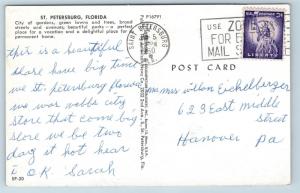 ST. PETERSBURG, FLORIDA
City of gardens, green lawns and trees, broad
streets and avenues, beautiful parks — a perfect
place for a vacation and a delightful place for
permanent home.
P16791
SAINT PETERSBURG
USE ZO
FOR
MAIL S
LIBERTY
3¢
POST CARD
this is a beautiful
place have big time
we st. petersburg florida
we war webbs city
store that come big
store we be two
day it hot hear
I OK. Sarah
Mrs Alton Eichelberger
623 East middle
Street
Hanover Pa
SP-20